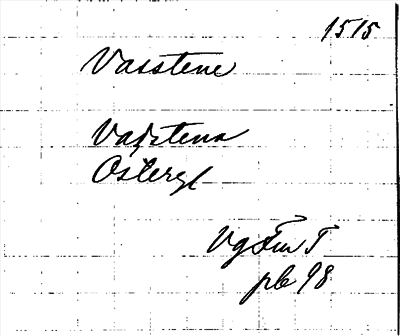 1515
Vasstene
Vadstena
Östergl
VgFmT
pb 98